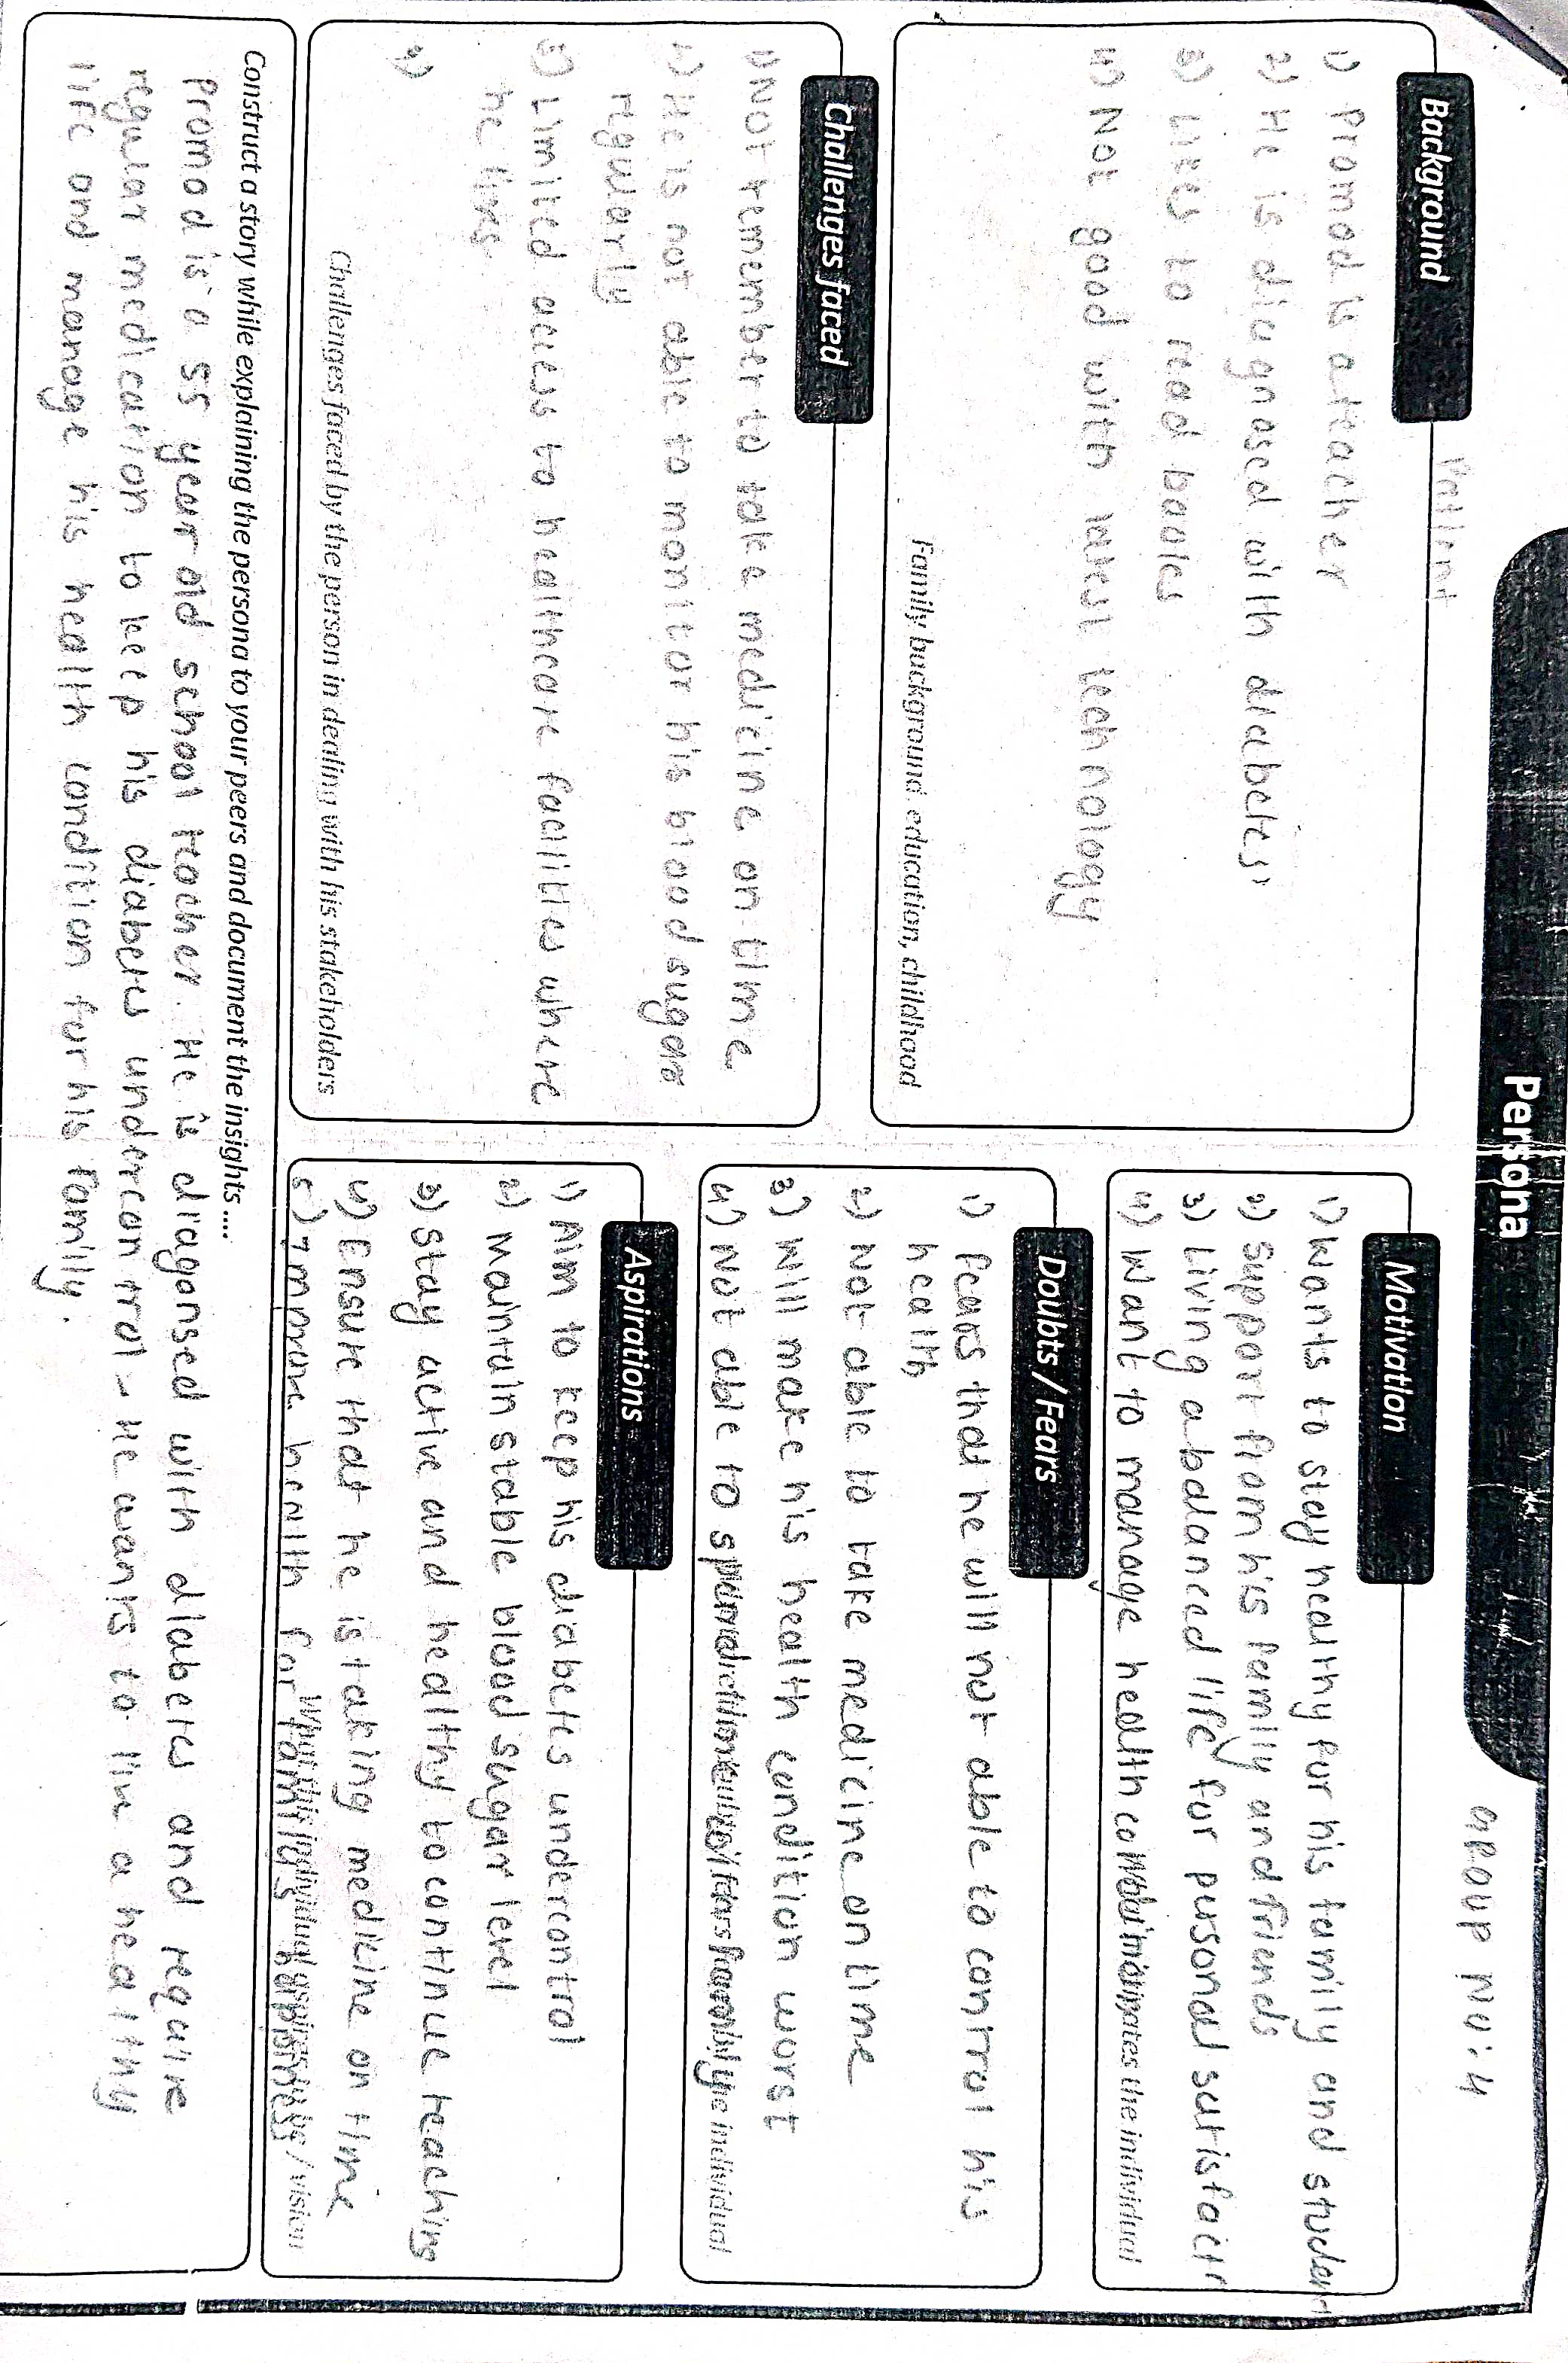 Persona
GROUP NO: 4
Patient
Background
1) Promod is a teacher
2) He is diagnosed with diabetes
3) Likes to read books
4) Not good with latest technology
Family background, education, childhood
Challenges faced
1) Not remember to take medicine on time
2) He is not able to monitor his blood sugar
regularly
3) Limited access to healthcare facilities where
he lives
4)
Challenges faced by the person in dealing with his stakeholders
Motivation
1) Wants to stay healthy for his family and student
2) Support from his family and friends
3) Living a balanced life for personal satisfact
4) Want to manage health
What motivates the individual
Doubts / Fears
1) Fears that he will not able to control his
health
2) Not able to take medicine on time
3) Will make his health condition worst
4) Not able to spend time with family
individual
Aspirations
1) Aim to keep his diabetes undercontrol
2) Maintain stable blood sugar level
3) Stay active and healthy to continue teaching
4) Ensure that he is taking medicine on time
5) Improve health for family's happiness
What this individual aspires to be / vision
Construct a story while explaining the persona to your peers and document the insights ....
Promod is a 55 year old school teacher. He is diagonsed with diabetes and require
regular medication to keep his diabetes undercontrol - He wants to live a healthy
life and manage his health condition for his family.